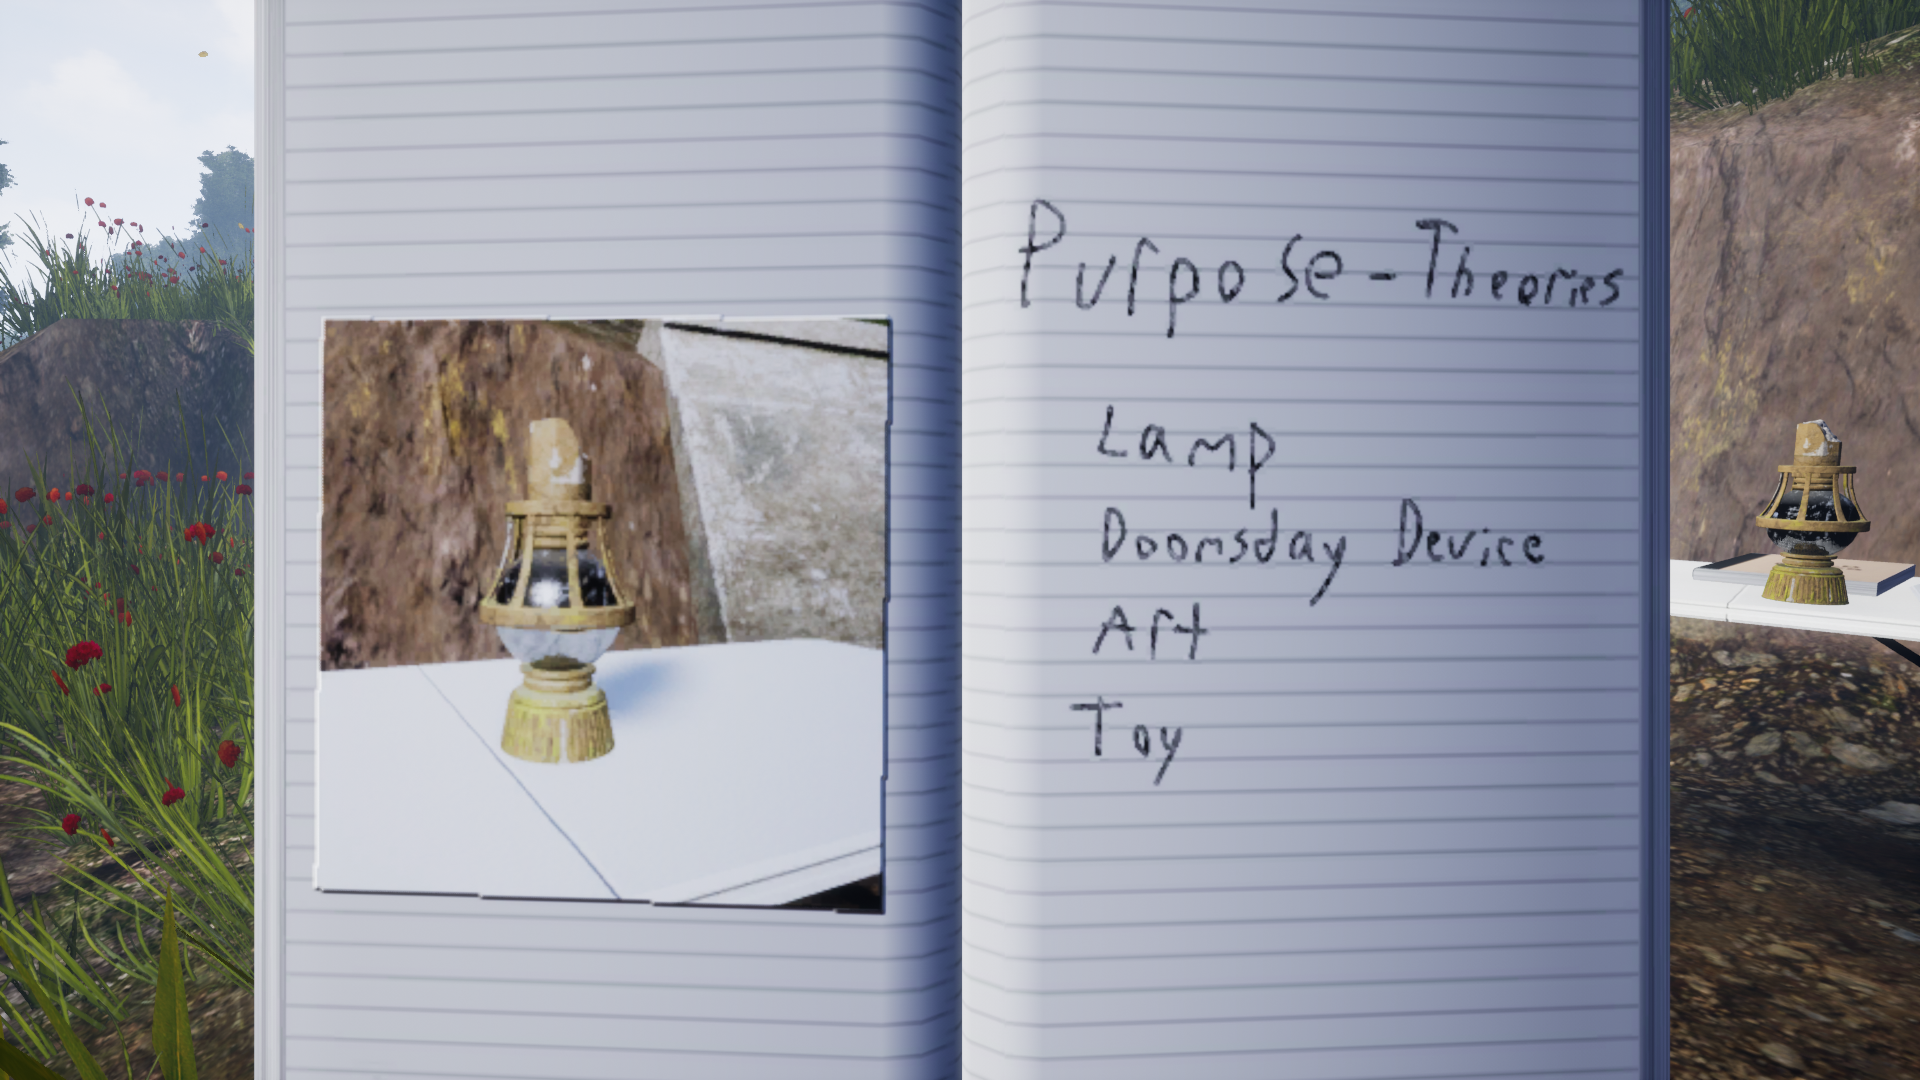 Purpose - Theories
Lamp
Doomsday Device
Art
Toy